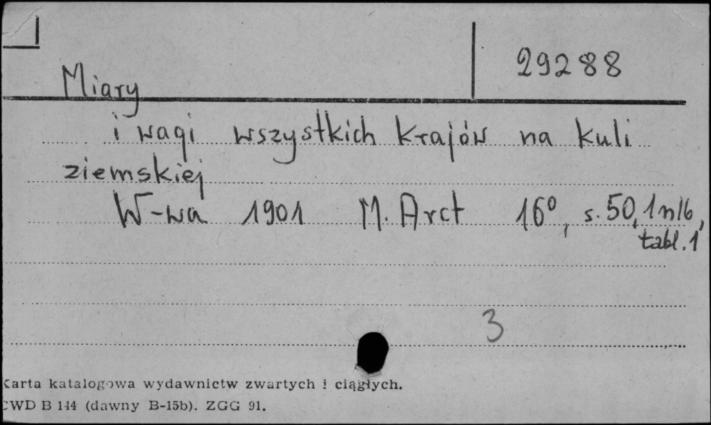 29288
Miary
i wagi wszystkich krajów na kuli
ziemskiej
W-wa 1901 M. Arct 16°, s. 50, 1 nlb,
tabl. 1
3
Karta katalogowa wydawnictw zwartych i ciągłych.
CWD B 144 (dawny B-15b). ZGG 91.